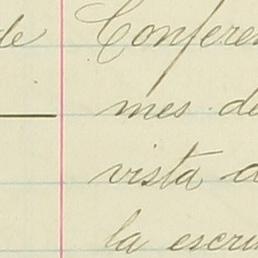 de Conferen
mes de
vista d
la escri